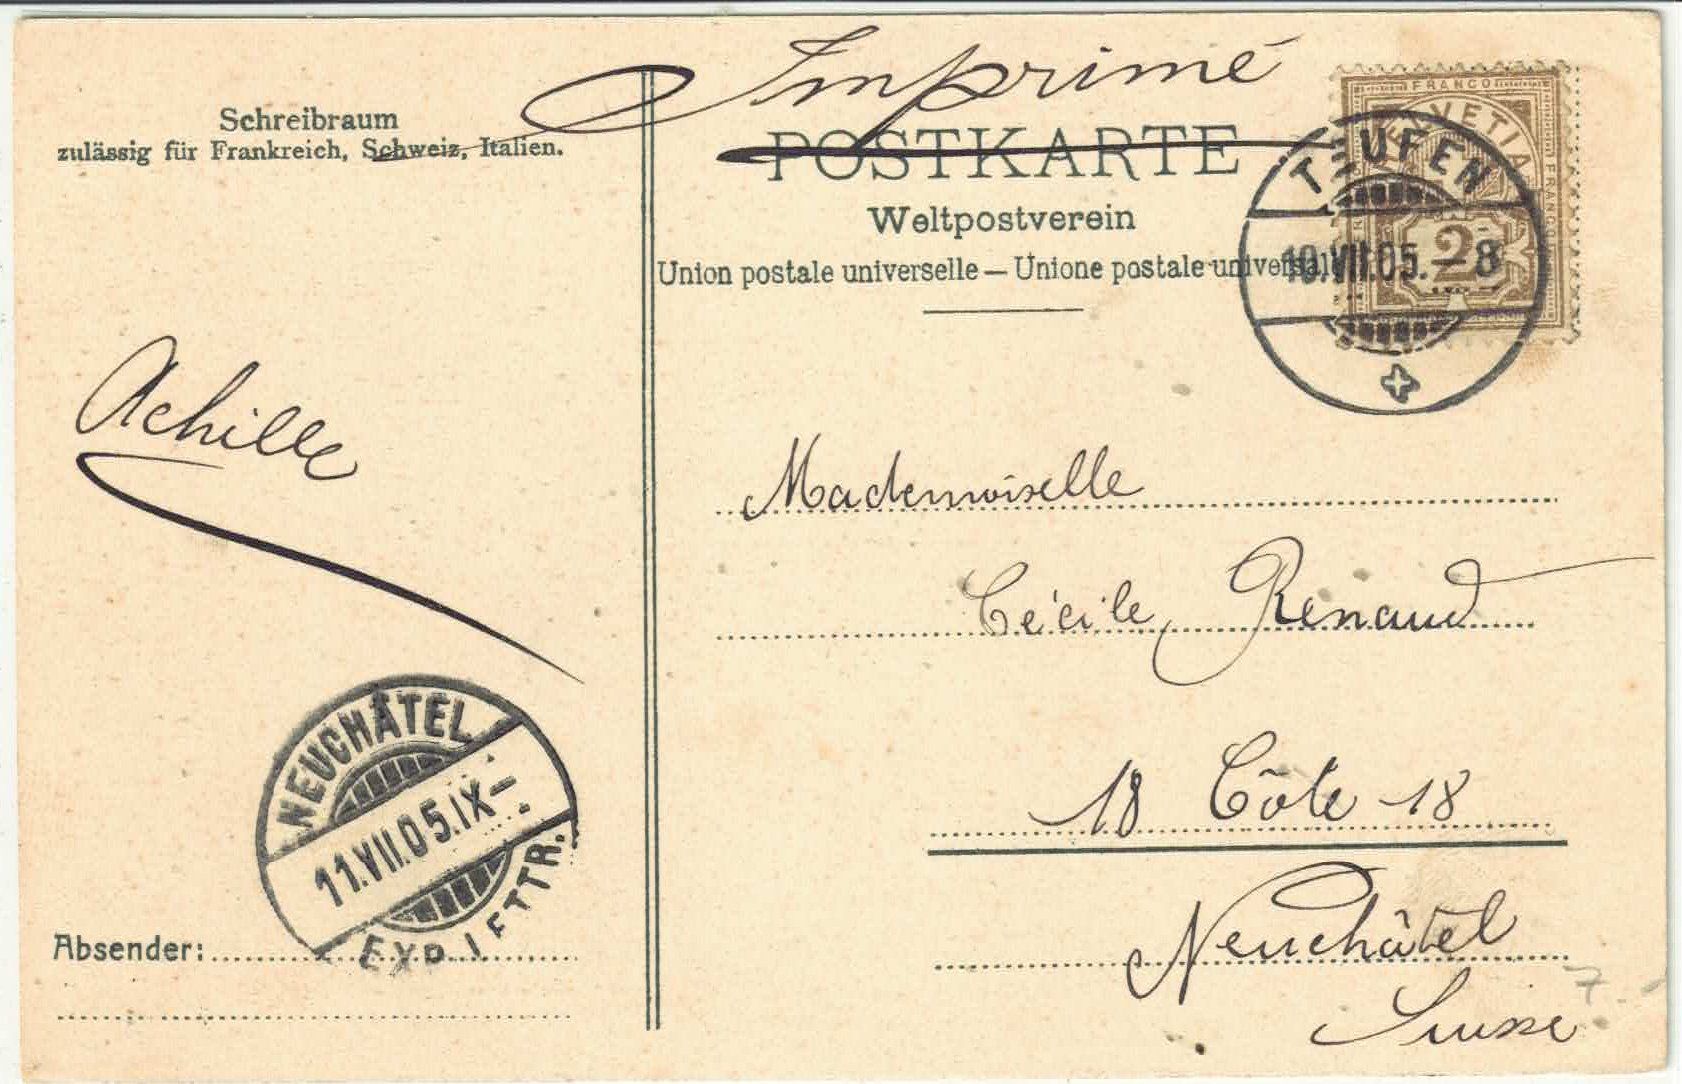 Imprimé
Schreibraum
zulässig für Frankreich, Schweiz, Italien.
POSTKARTE
Weltpostverein
Union postale universelle — Unione postale universale
FRANCO
HELVETIA
FRANCO
2
TEUFEN
10.VII.05.–8
Achille
Mademoiselle
Cécile Renaud
18 Côte 18
Neuchâtel
Suisse
NEUCHÂTEL
11.VII.05.IX–
EXP. LETTR.
Absender:
7.